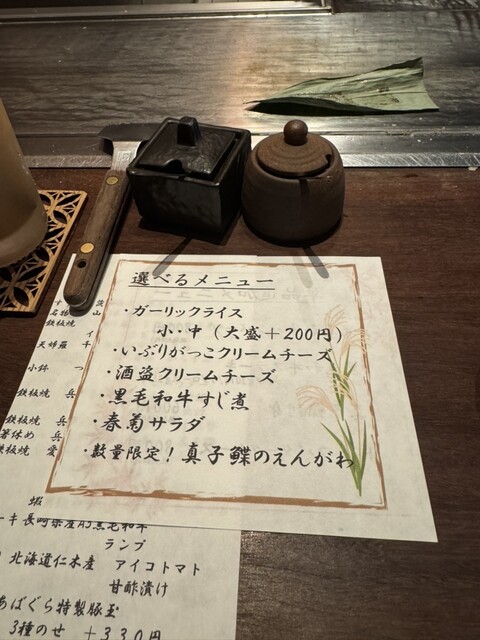 選べるメニュー
・ガーリックライス
小・中（大盛＋200円）
・いぶりがっこクリームチーズ
・酒盗クリームチーズ
・黒毛和牛すじ煮
・春菊サラダ
・数量限定！真子鰈のえんがわ
す
名物
鉄板焼
天婦羅
小鉢
鉄板焼 兵
鉄板焼 兵
箸休め 兵
鉄板焼 愛
蝦
ーキ 長崎県産A5黒毛和牛
ランプ
北海道仁木産 アイコトマト
甘酢漬け
あばぐら特製豚玉
3種のせ ＋330円